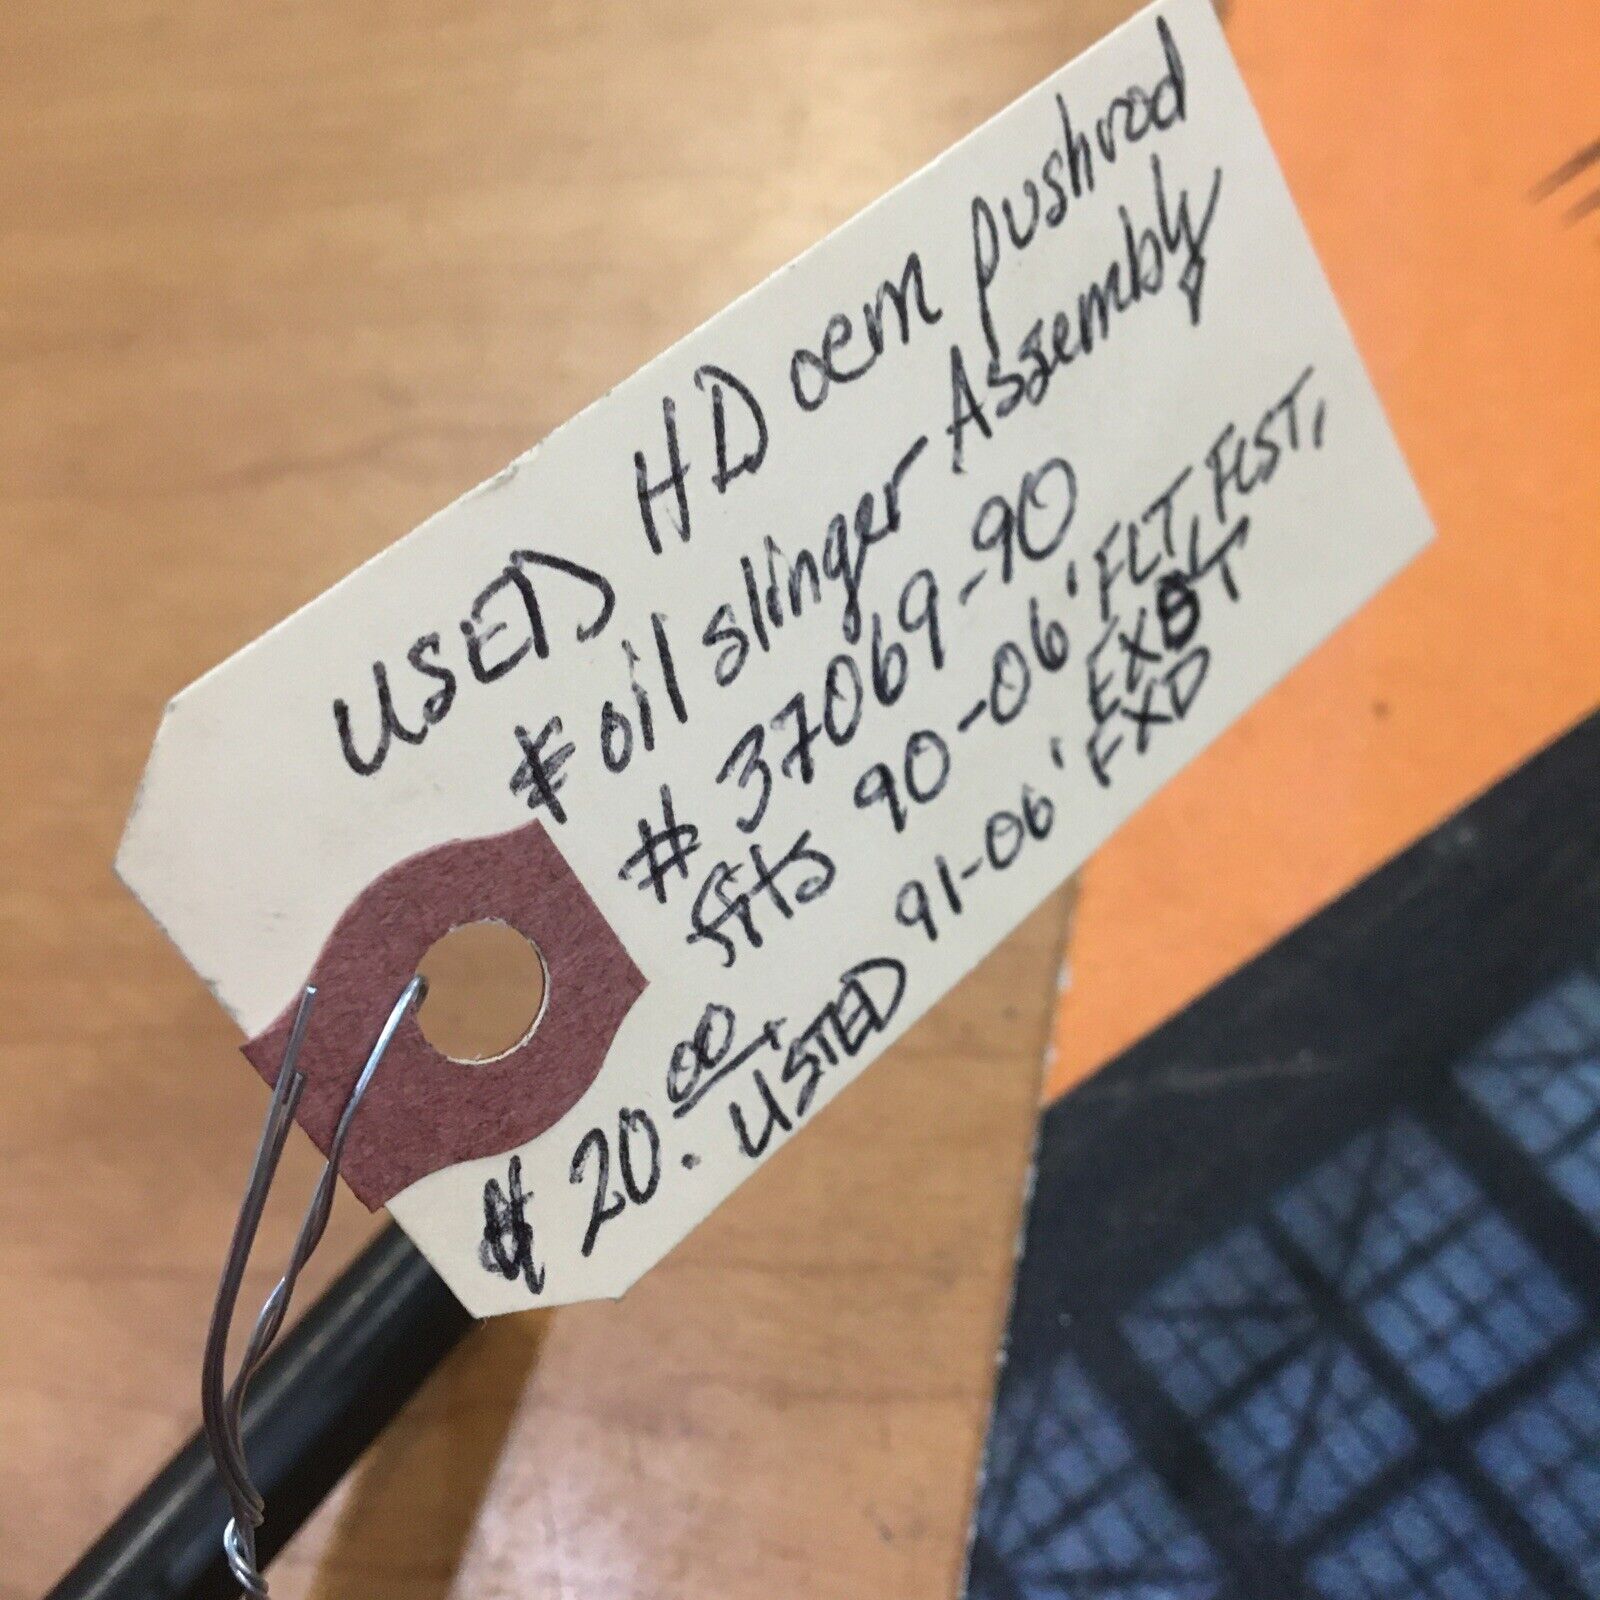 USED HD oem pushrod
& oil slinger Assembly
# 37069-90
fits 90-06' FLT, FLST,
FXLT
91-06' FXD
$20.00 USTED